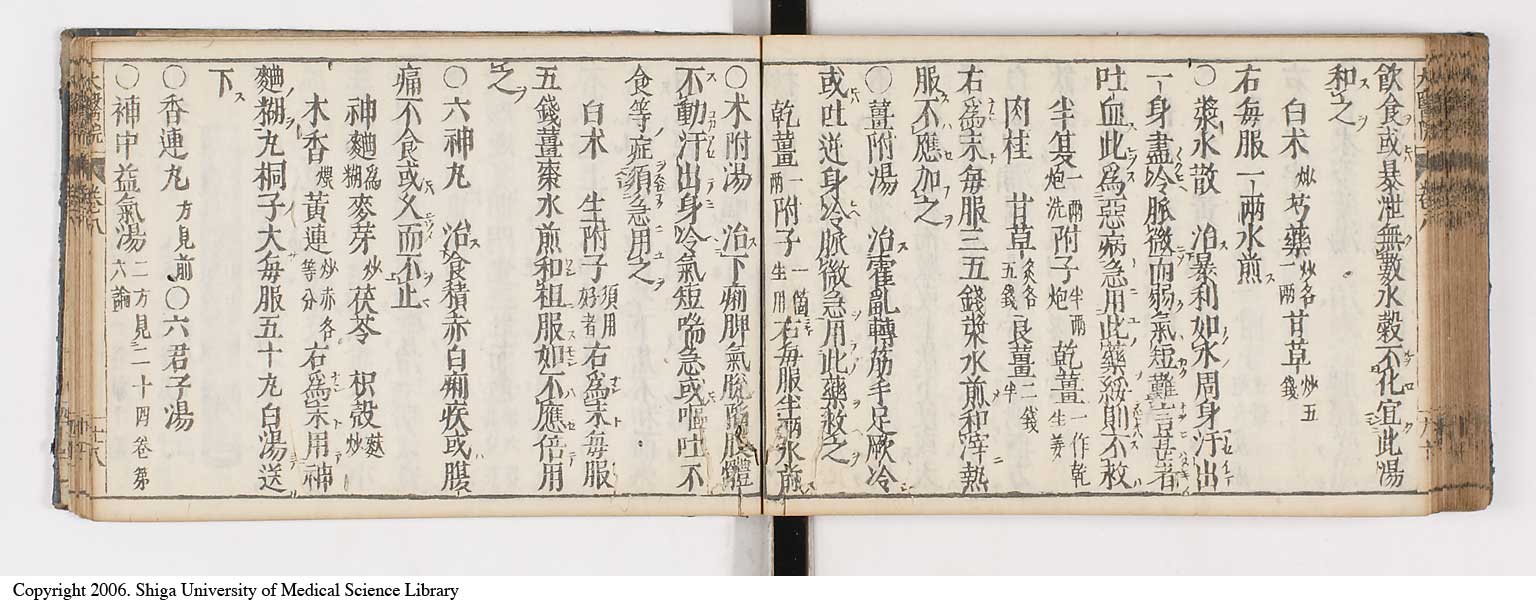 飲食或暴泄無數水穀不化宜此湯
和之
白朮炒芍藥炒各一兩甘草炒五錢
右每服一兩水煎
○漿水散 治暴利如水周身汗出
一身盡冷脈微而弱氣短難言甚者
吐血此為惡病急用此藥緩則不救
半夏一兩炮洗附子半兩炮乾薑一作乾生姜
肉桂 甘草炙各五錢良薑二錢半
右為末每服三五錢漿水煎和滓熱
服不應加之
○薑附湯 治霍亂轉筋手足厥冷
或吐逆身冷脈微急用此藥救之
乾薑一兩附子一個生用右每服半兩水煎
○朮附湯 治下痢脾氣脫
不動汗出身冷氣短喘急或嘔吐不
食等症須急用之
白朮 生附子須用好者右為末每服
五錢薑棗水煎和粗服如不應倍用
之
○六神丸 治食積赤白痢疾或腹
痛不食或久而不止
神麯為糊麥芽炒茯苓 枳殼麩炒
木香煨黃連炒赤各等分右為末用神
麯糊丸桐子大每服五十丸白湯送
下
○香連丸方見前○六君子湯
○補中益氣湯二方見二十四卷第六論